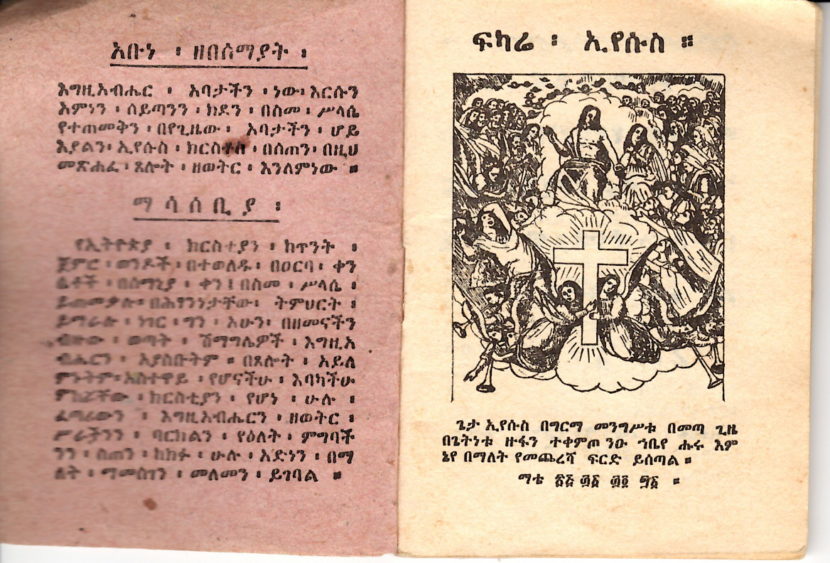 አቡነ ፡ ዘበሰማያት ፡
እግዚአብሔር ፡ አባታችን ፡ ነው፡ እርሱን
እምነን ፡ ሰይጣንን ፡ ክደን ፡ በስመ ፡ ሥላሴ
የተጠመቅን ፡ በየጊዜው ፡ አባታችን ፡ ሆይ
እያልን፡ ኢየሱስ ፡ ክርስቶስ ፡ በሰጠን፡ በዚህ
መጽሐፈ ፡ ጸሎት ፡ ዘወትር ፡ እንለምነው ።
ማሳሰቢያ ፡
የኢትዮጵያ ፡ ክርስተያን ፡ ከጥንት ፡
ጀምሮ ፡ ወንዶች ፡ በተወለዱ ፡ በዐርባ ፡ ቀን
ሴቶች ፡ በሰማኒያ ፡ ቀን ፡ በስመ ፡ ሥላሴ ፡
ይጠመቃሉ፡ በሕፃንነታቸው፡ ትምህርት ፡
ይማራሉ ፡ ነገር ፡ ግን ፡ አሁን፡ በዘመናችን
ወጣት ፡ ሽማግሌዎች ፡ እግዚአ
ብሔርን ፡ አያስቡትም ። በጸሎት ፡ አይለ
ምኑትም። አስተዋይ ፡ የሆናችሁ ፡ እባካችሁ
ምከሯቸው ፡ ክርስቲያን ፡ የሆነ ፡ ሁሉ ፡
ፈጣሪውን ፡ እግዚአብሔርን ፡ ዘወትር ፡
ሥራችንን ፡ ባርክልን ፡ የዕለት ፡ ምግባች
ንን ፡ ስጠን ፡ ከክፉ ፡ ሁሉ ፡ አድነን ፡ በማ
ለት ፡ ማመስገን ፡ መለመን ፡ ይገባል ።
ፍካሬ ፡ ኢየሱስ ።
ጌታ ኢየሱስ በግርማ መንግሥቱ በመጣ ጊዜ
በጌትነቱ ዙፋን ተቀምጦ ንዑ ኀቤየ ሑሩ እም
ኔየ በማለት የመጨረሻ ፍርድ ይሰጣል ።
ማቴ ፳፭ ፴፩ ፴፬ ፵፩ ።